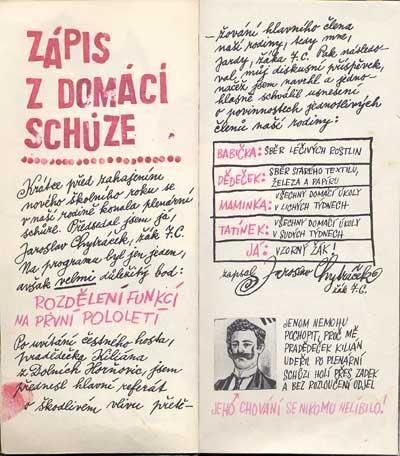 ZÁPIS
Z DOMÁCÍ
SCHŮZE
Krátce před zahájením
nového školního roku se
v naší rodině konala plenární
schůze. Předsedal jsem já,
Jaroslav Chytráček, žák 7.C.
Na programu byl jen jeden,
avšak velmi důležitý bod:
ROZDĚLENÍ FUNKCÍ
NA PRVNÍ POLOLETÍ
Po uvítání čestného hosta,
pradědečka Kiliána
z Dolních Horňovic, jsem
přednesl hlavní referát
o škodlivém vlivu přetě-
-žování hlavního člena
naší rodiny, tedy mne,
Jardy, žáka 7.C. Pak následo-
val můj diskusní příspěvek,
načež jsem navrhl a jedno-
hlasně schválil usnesení
o povinnostech jednotlivých
členů naší rodiny:
BABIČKA: SBĚR LÉČIVÝCH ROSTLIN
DĚDEČEK: SBĚR STARÉHO TEXTILU,
ŽELEZA A PAPÍRU
MAMINKA: VŠECHNY DOMÁCÍ ÚKOLY
V LICHÝCH TÝDNECH
TATÍNEK: VŠECHNY DOMÁCÍ ÚKOLY
V SUDÝCH TÝDNECH
JÁ: VZORNÝ ŽÁK!
zapsal Jaroslav Chytráček
žák 7.C.
JENOM NEMOHU
POCHOPIT, PROČ MĚ
PRADĚDEČEK KILIÁN
UDEŘIL PO PLENÁRNÍ
SCHŮZI HOLÍ PŘES ZADEK
A BEZ ROZLOUČENÍ ODJEL
JEHO CHOVÁNÍ SE NIKOMU NELÍBILO!